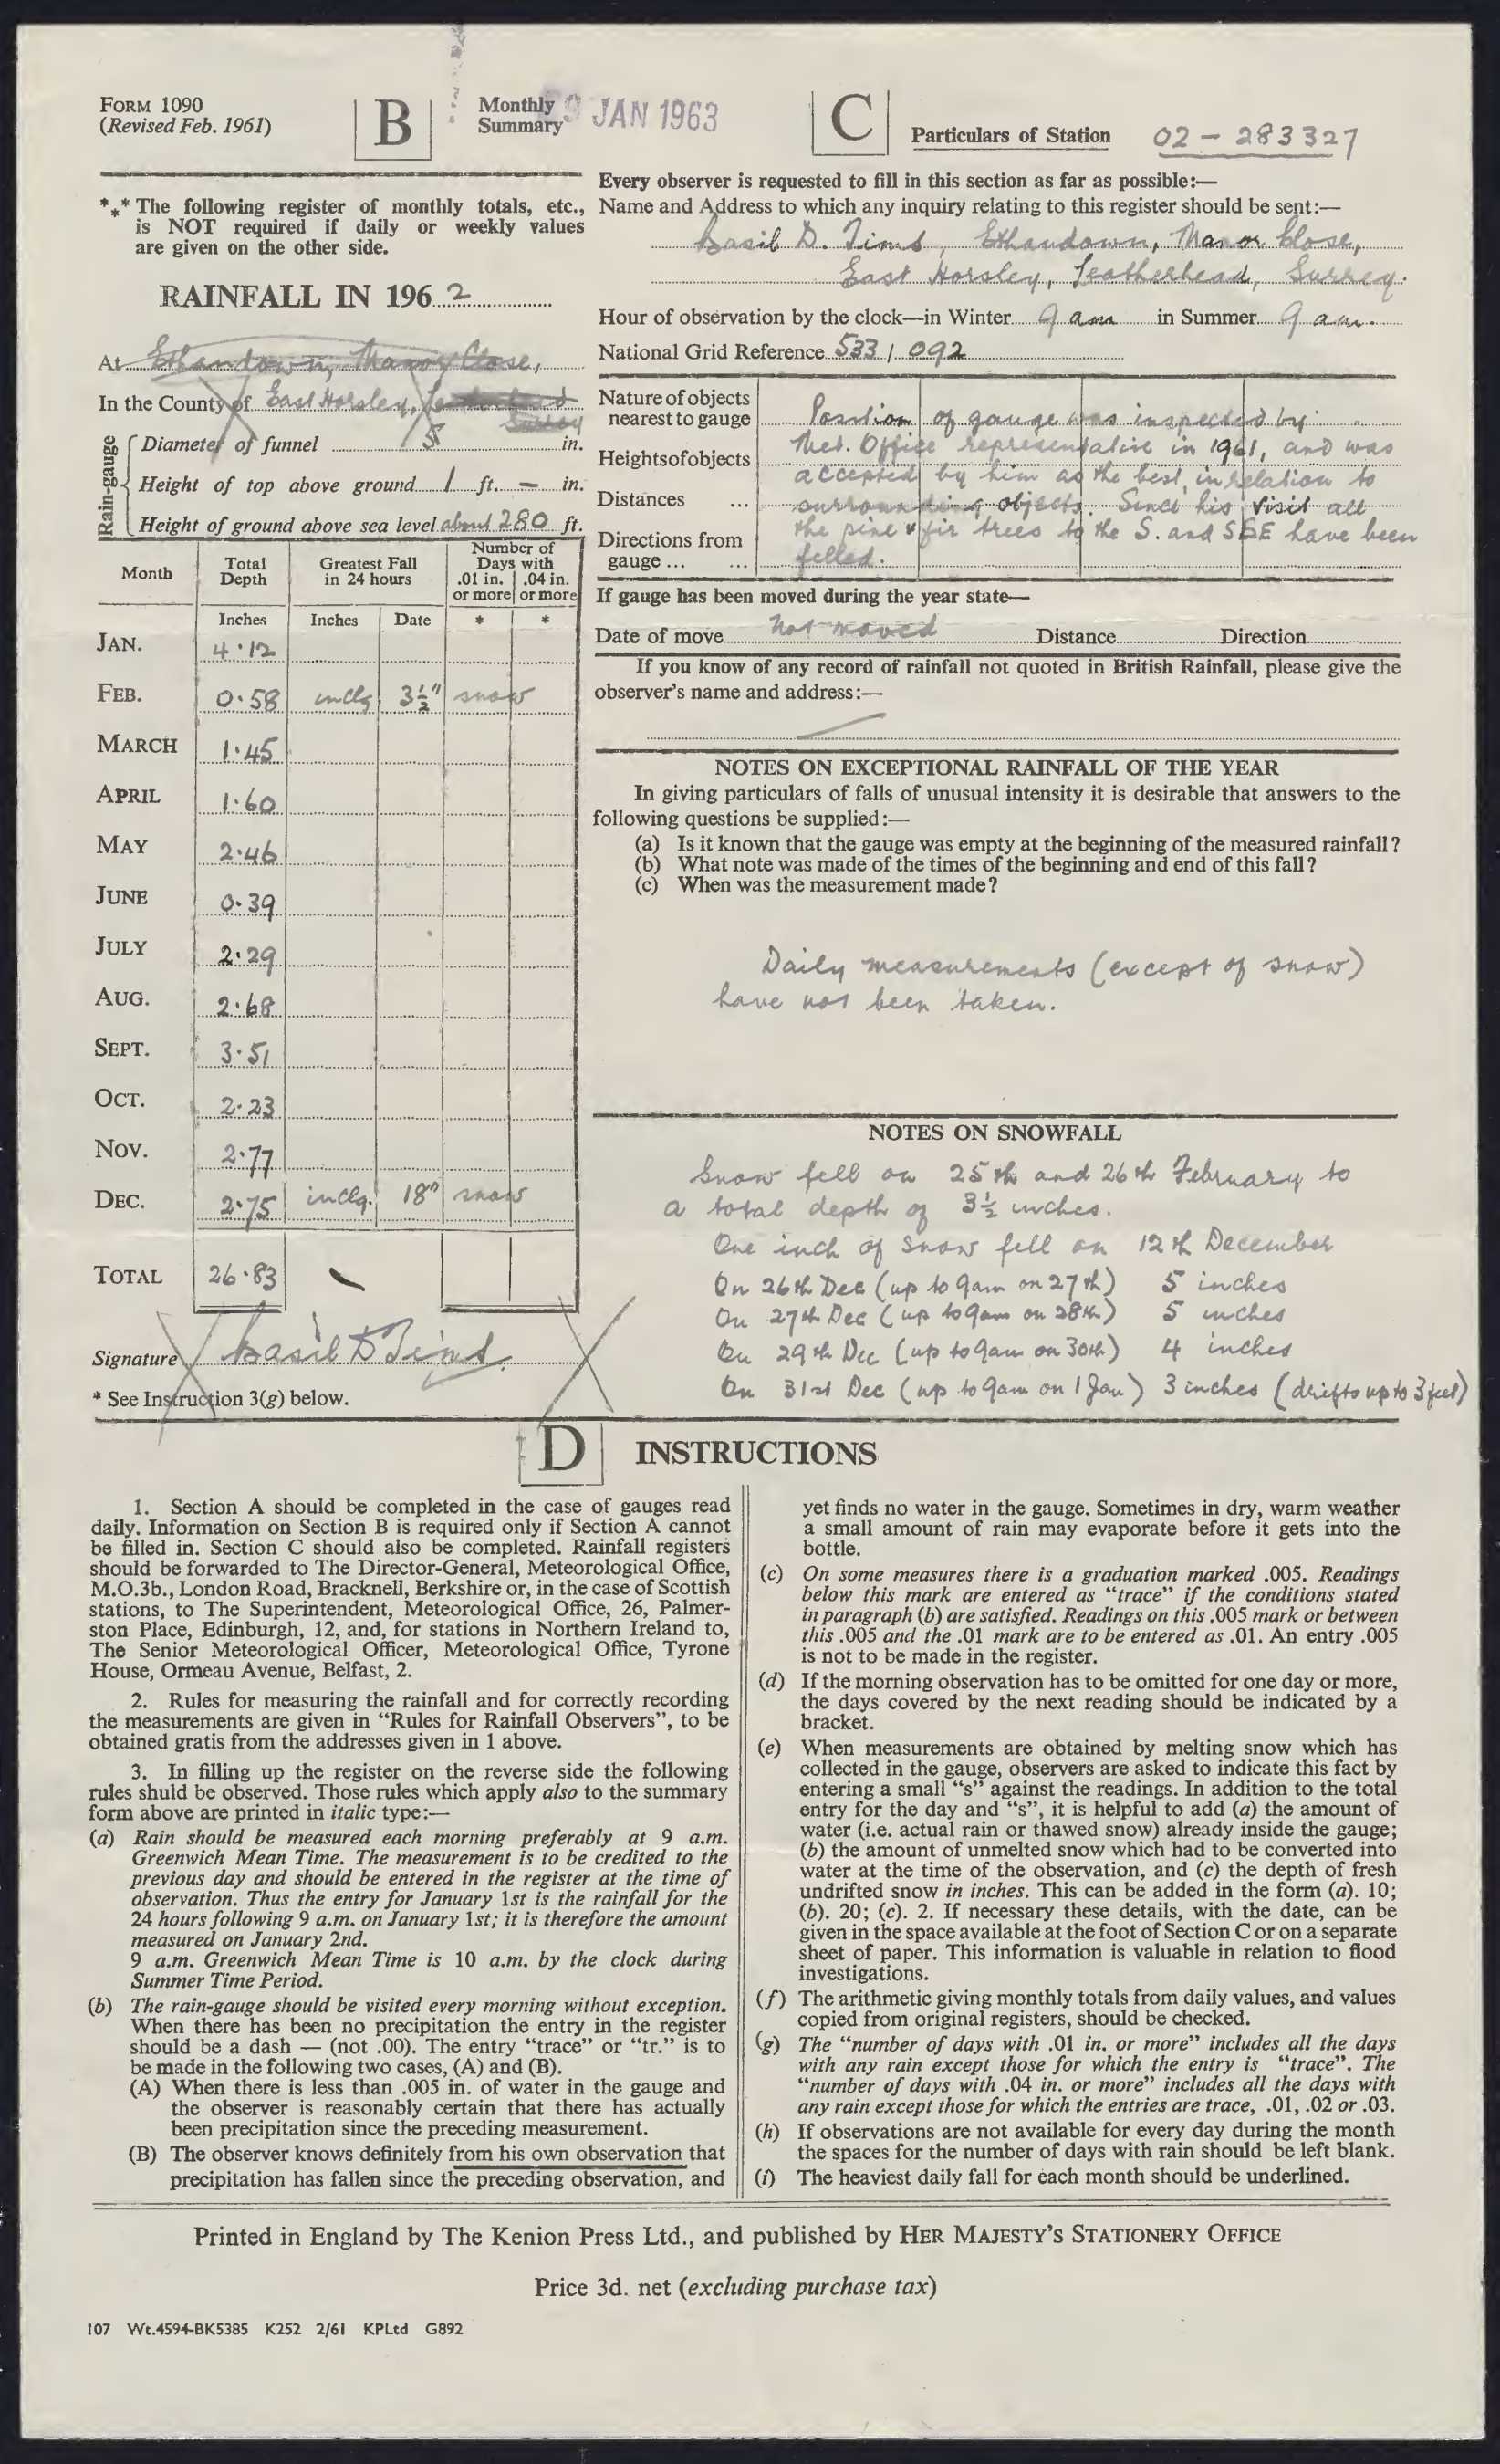 FORM 1090
(Revised Feb. 1961)
B
Monthly
Summary
9 JAN 1963
*⁎* The following register of monthly totals, etc.,
is NOT required if daily or weekly values
are given on the other side.
RAINFALL IN 196 2
At Ethandown, Manor Close,
In the County of East Horsley,
Surrey
Rain-gauge
Diameter of funnel 5 in.
Height of top above ground 1 ft. — in.
Height of ground above sea level about 280 ft.
Month | Total Depth | Greatest Fall in 24 hours | Number of Days with .01 in. or more | .04 in. or more
Inches | Inches | Date | * | *
JAN. 4.12
FEB. 0.58 inclg. 3½" snow
MARCH 1.45
APRIL 1.60
MAY 2.46
JUNE 0.39
JULY 2.29
AUG. 2.68
SEPT. 3.51
OCT. 2.23
NOV. 2.77
DEC. 2.75 inclg. 18" snow
TOTAL 26.83
Signature Basil D Tims.
* See Instruction 3(g) below.
C
Particulars of Station 02 – 283327
Every observer is requested to fill in this section as far as possible:—
Name and Address to which any inquiry relating to this register should be sent:—
Basil D. Tims, Ethandown, Manor Close,
East Horsley, Leatherhead, Surrey.
Hour of observation by the clock—in Winter 9 am in Summer 9 am.
National Grid Reference 533 / 092
Nature of objects
nearest to gauge
Heights of objects
Distances ...
Directions from
gauge ... ...
Position of gauge was inspected by
Met. Office representative in 1961, and was
accepted by him as the best, in relation to
surrounding objects. Since his visit all
the pine & fir trees to the S. and SSE have been
felled.
If gauge has been moved during the year state—
Date of move not moved Distance Direction
If you know of any record of rainfall not quoted in British Rainfall, please give the
observer's name and address:—
NOTES ON EXCEPTIONAL RAINFALL OF THE YEAR
In giving particulars of falls of unusual intensity it is desirable that answers to the
following questions be supplied:—
(a) Is it known that the gauge was empty at the beginning of the measured rainfall?
(b) What note was made of the times of the beginning and end of this fall?
(c) When was the measurement made?
Daily measurements (except of snow)
have not been taken.
NOTES ON SNOWFALL
Snow fell on 25th and 26th February to
a total depth of 3½ inches.
One inch of snow fell on 12th December
On 26th Dec (up to 9am on 27th) 5 inches
On 27th Dec (up to 9am on 28th) 5 inches
On 29th Dec (up to 9am on 30th) 4 inches
On 31st Dec (up to 9am on 1 Jan) 3 inches (drifts up to 3 feet)
D
INSTRUCTIONS
1. Section A should be completed in the case of gauges read
daily. Information on Section B is required only if Section A cannot
be filled in. Section C should also be completed. Rainfall registers
should be forwarded to The Director-General, Meteorological Office,
M.O.3b., London Road, Bracknell, Berkshire or, in the case of Scottish
stations, to The Superintendent, Meteorological Office, 26, Palmer-
ston Place, Edinburgh, 12, and, for stations in Northern Ireland to,
The Senior Meteorological Officer, Meteorological Office, Tyrone
House, Ormeau Avenue, Belfast, 2.
2. Rules for measuring the rainfall and for correctly recording
the measurements are given in “Rules for Rainfall Observers”, to be
obtained gratis from the addresses given in 1 above.
3. In filling up the register on the reverse side the following
rules shuld be observed. Those rules which apply also to the summary
form above are printed in italic type:—
(a) Rain should be measured each morning preferably at 9 a.m.
Greenwich Mean Time. The measurement is to be credited to the
previous day and should be entered in the register at the time of
observation. Thus the entry for January 1st is the rainfall for the
24 hours following 9 a.m. on January 1st; it is therefore the amount
measured on January 2nd.
9 a.m. Greenwich Mean Time is 10 a.m. by the clock during
Summer Time Period.
(b) The rain-gauge should be visited every morning without exception.
When there has been no precipitation the entry in the register
should be a dash — (not .00). The entry “trace” or “tr.” is to
be made in the following two cases, (A) and (B).
(A) When there is less than .005 in. of water in the gauge and
the observer is reasonably certain that there has actually
been precipitation since the preceding measurement.
(B) The observer knows definitely from his own observation that
precipitation has fallen since the preceding observation, and
yet finds no water in the gauge. Sometimes in dry, warm weather
a small amount of rain may evaporate before it gets into the
bottle.
(c) On some measures there is a graduation marked .005. Readings
below this mark are entered as “trace” if the conditions stated
in paragraph (b) are satisfied. Readings on this .005 mark or between
this .005 and the .01 mark are to be entered as .01. An entry .005
is not to be made in the register.
(d) If the morning observation has to be omitted for one day or more,
the days covered by the next reading should be indicated by a
bracket.
(e) When measurements are obtained by melting snow which has
collected in the gauge, observers are asked to indicate this fact by
entering a small “s” against the readings. In addition to the total
entry for the day and “s”, it is helpful to add (a) the amount of
water (i.e. actual rain or thawed snow) already inside the gauge;
(b) the amount of unmelted snow which had to be converted into
water at the time of the observation, and (c) the depth of fresh
undrifted snow in inches. This can be added in the form (a). 10;
(b). 20; (c). 2. If necessary these details, with the date, can be
given in the space available at the foot of Section C or on a separate
sheet of paper. This information is valuable in relation to flood
investigations.
(f) The arithmetic giving monthly totals from daily values, and values
copied from original registers, should be checked.
(g) The “number of days with .01 in. or more” includes all the days
with any rain except those for which the entry is “trace”. The
“number of days with .04 in. or more” includes all the days with
any rain except those for which the entries are trace, .01, .02 or .03.
(h) If observations are not available for every day during the month
the spaces for the number of days with rain should be left blank.
(i) The heaviest daily fall for each month should be underlined.
Printed in England by The Kenion Press Ltd., and published by HER MAJESTY'S STATIONERY OFFICE
Price 3d. net (excluding purchase tax)
107 Wt.4594-BK5385 K252 2/61 KPLtd G892